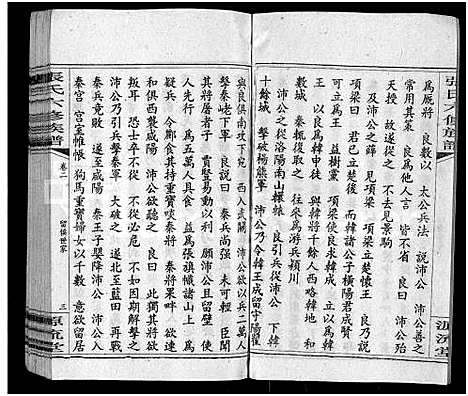 張氏六修族譜
源流堂
為厩將　良數以　太公兵法　說沛公　沛公善之
常用其策　良為他人言　皆不省　良曰　沛公殆
天授　故遂從之　不去見景駒
及沛公之薛　見項梁　項梁立楚懷王　良乃說
項梁曰　君已立楚後　而韓諸公子橫陽君成賢
王　益樹黨　項梁使良求韓成　立以為韓王
以良為韓申徒　與韓將千餘人西略韓地　得數城
秦輒復取之　往來為游兵潁川
沛公之從洛陽南出轘轅　良引兵從沛公　下韓
十餘城　擊破楊熊軍　沛公乃令韓王成留守陽翟
與良俱南攻下宛　西入武關　沛公欲以兵二萬人
擊秦嶢下軍　良說曰　秦兵尚强　未可輕　臣聞
其將屠者子　賈豎易動以利　願沛公且留壁　使
人先行　為五萬人具食　益為張旗幟諸山上　為
疑兵　令酈食其持重寶啗秦將　秦將果畔　欲連
和俱西襲咸陽　沛公欲聽之　良曰　此獨其將欲
叛耳　恐士卒不從　不從必危　不如因其解擊之
沛公乃引兵擊秦軍　大破之　遂北至藍田　再戰
秦兵竟敗　遂至咸陽　秦王子嬰降沛公　沛公入
秦宮　宮室帷帳　狗馬重寶婦女以千數　意欲留居
張氏六修族譜
卷二
留侯世家
三
源流堂